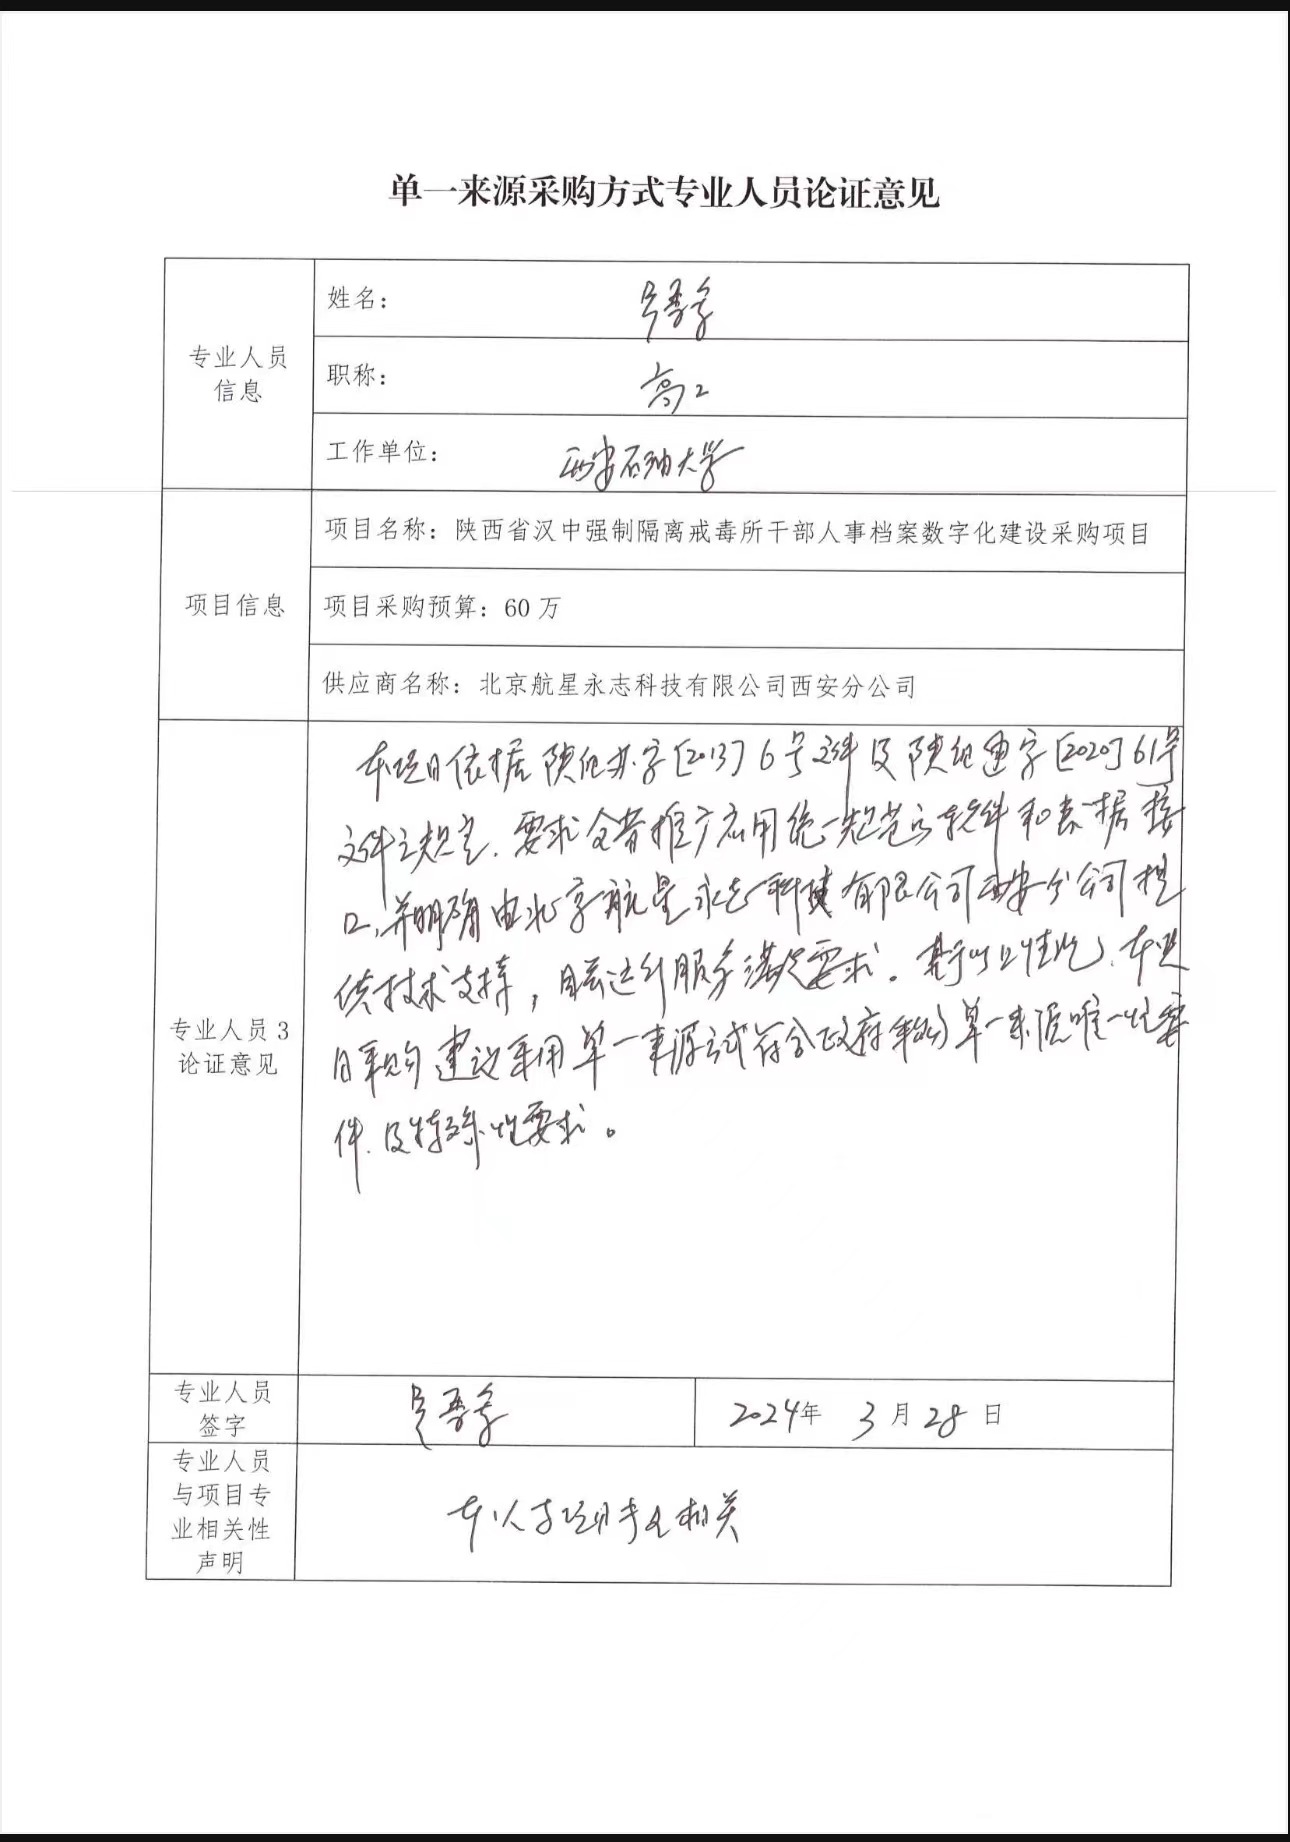 单一来源采购方式专业人员论证意见
专业人员
信息
姓名：
职称： 高工
工作单位： 西安石油大学
项目信息
项目名称：陕西省汉中强制隔离戒毒所干部人事档案数字化建设采购项目
项目采购预算：60 万
供应商名称：北京航星永志科技有限公司西安分公司
专业人员 3
论证意见
本项目依据陕组办字[2013]6号文件及陕组通字[2020]61号
文件之规定，要求全省推广应用统一规范的软件和数据接
口，并明确由北京航星永志科技有限公司西安分公司提
供技术支持，目前达到服务满足要求。基于以上情况，本项
目采购建议采用单一来源方式符合政府采购单一来源唯一性要
件及特殊性要求。
专业人员
签字
2024年 3月28日
专业人员
与项目专
业相关性
声明
本人与项目专业相关